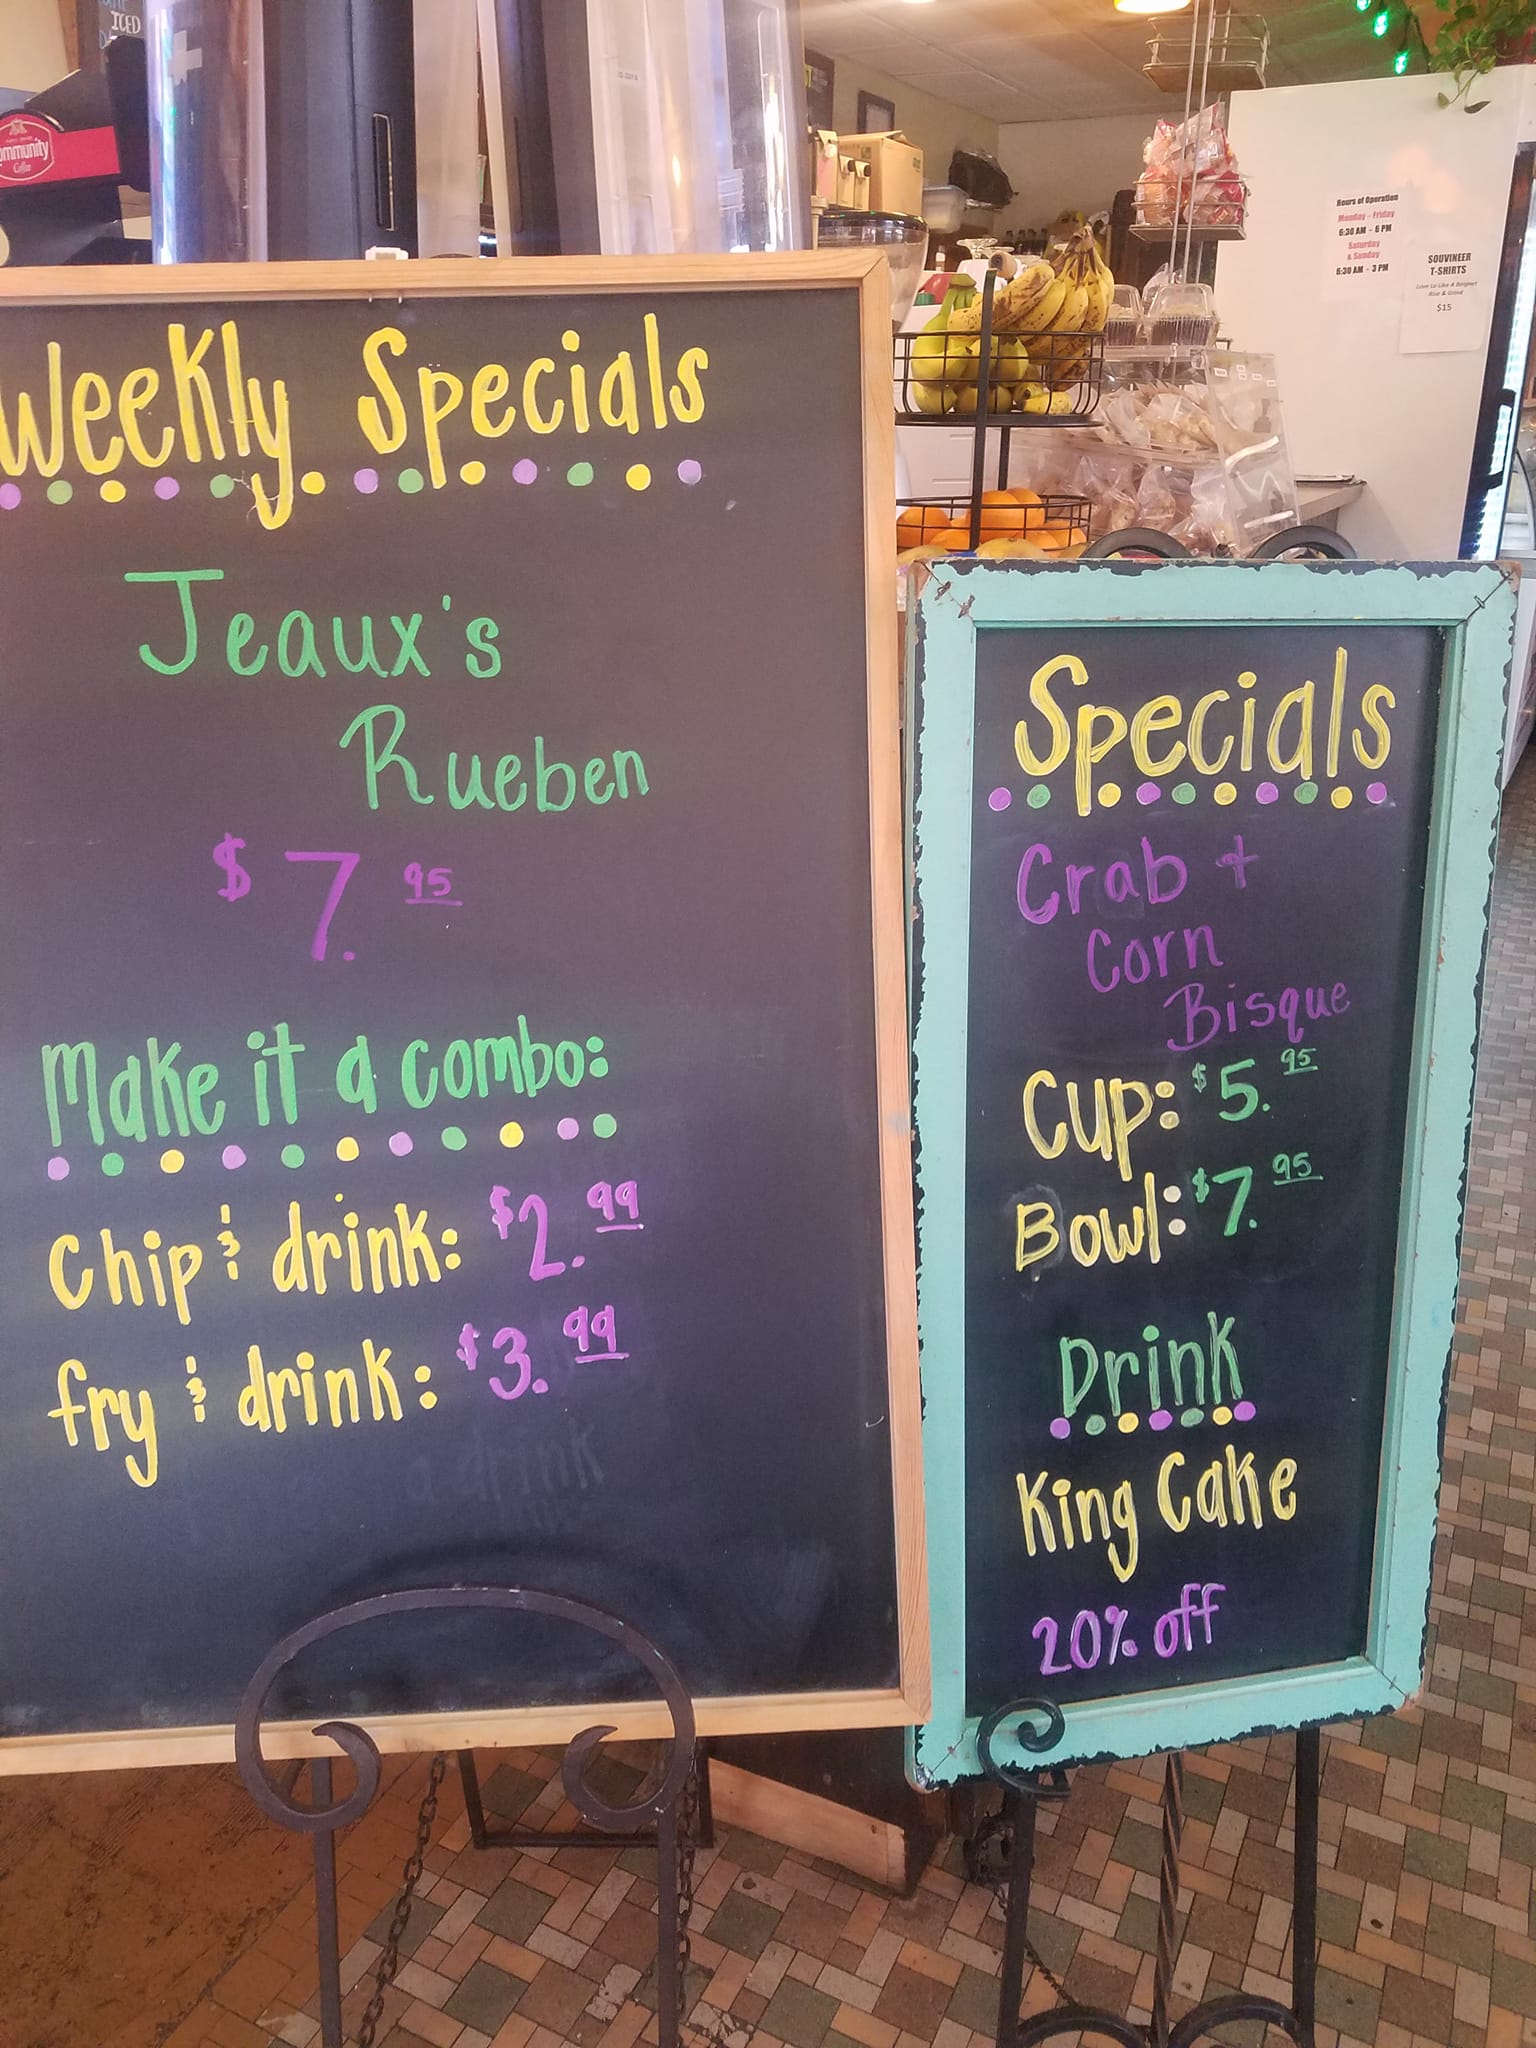 ICED
Community
Coffee
Hours of Operation
Monday - Friday
6:30 AM - 6 PM
Saturday
& Sunday
6:30 AM - 3 PM
SOUVINEER
T-SHIRTS
Love Lu Like A Beignet
Rise & Grind
$15
Weekly Specials
Jeaux's
Rueben
$7.95
Make it a combo:
Chip & drink: $2.99
fry & drink: $3.99
a drink
Specials
Crab +
Corn
Bisque
Cup: $5.95
Bowl: $7.95
Drink
King Cake
20% off